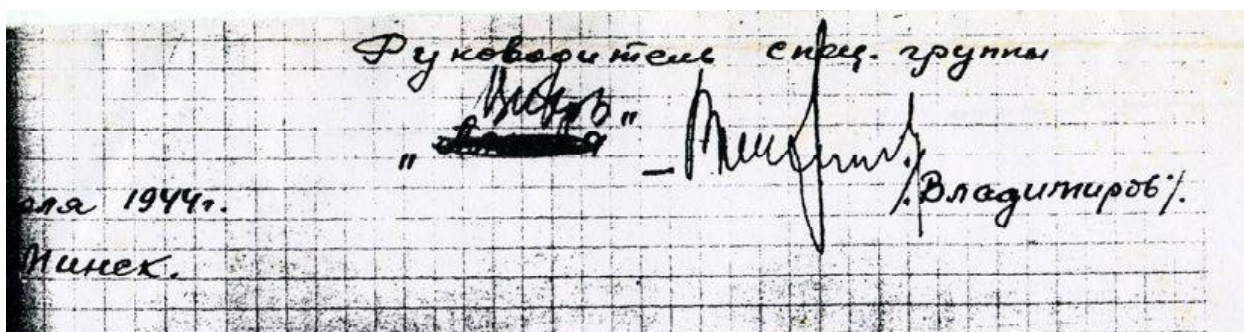 Руководитель спец. группы
"
"
— /Владимиров/.
ля 1944г.
Минск.